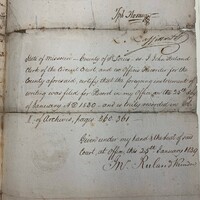 State of Missouri County of St Louis ss. I John Ruland
Clerk of the Circuit Court, and ex officio Recorder for the
County aforesaid, certify that the foregoing instrument of
writing was filed for Record in my Office on the 24th day
of January AD. 1830 and is truly recorded in Vol
I. of Archives, pages 360. 361
Given under my hand & the seal of our
Court, at office this 25th January 1830
Jno. Ruland